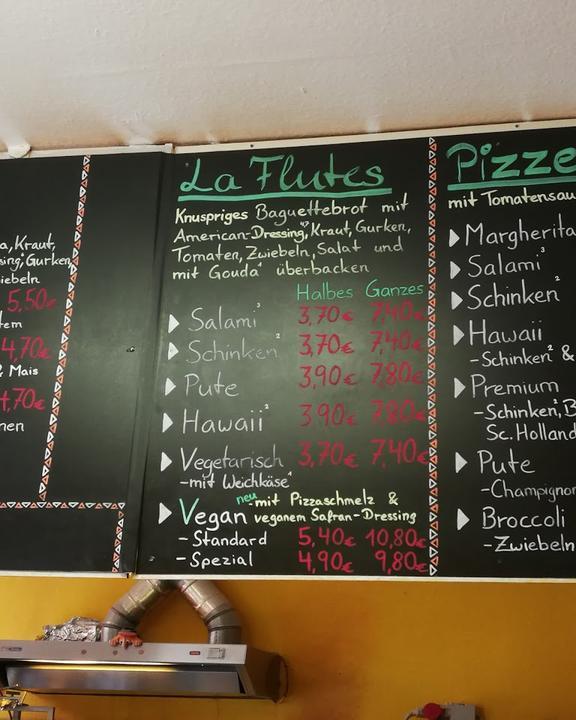 a, Kraut,
sing, Gurken
iebeln
5,50€
tem
4,70€
& Mais
nen
La Flutes
Knuspriges Baguettebrot mit
American-Dressing, Kraut, Gurken,
Tomaten, Zwiebeln, Salat und
mit Gouda überbacken
Halbes Ganzes
Salami² 3,70€ 7,40€
Schinken² 3,70€ 7,40€
Pute 3,90€ 7,80€
Hawaii² 3,90€ 7,80€
Vegetarisch 3,70€ 7,40€
-mit Weichkäse
neu mit Pizzaschmelz &
Vegan veganem Safran-Dressing
-Standard 5,40€ 10,80€
-Spezial 4,90€ 9,80€
Pizze
mit Tomatensau
Margherita
Salami
Schinken²
Hawaii
-Schinken² &
Premium
-Schinken², B
Sc. Holland
Pute
-Champignon
Broccoli
-Zwiebeln